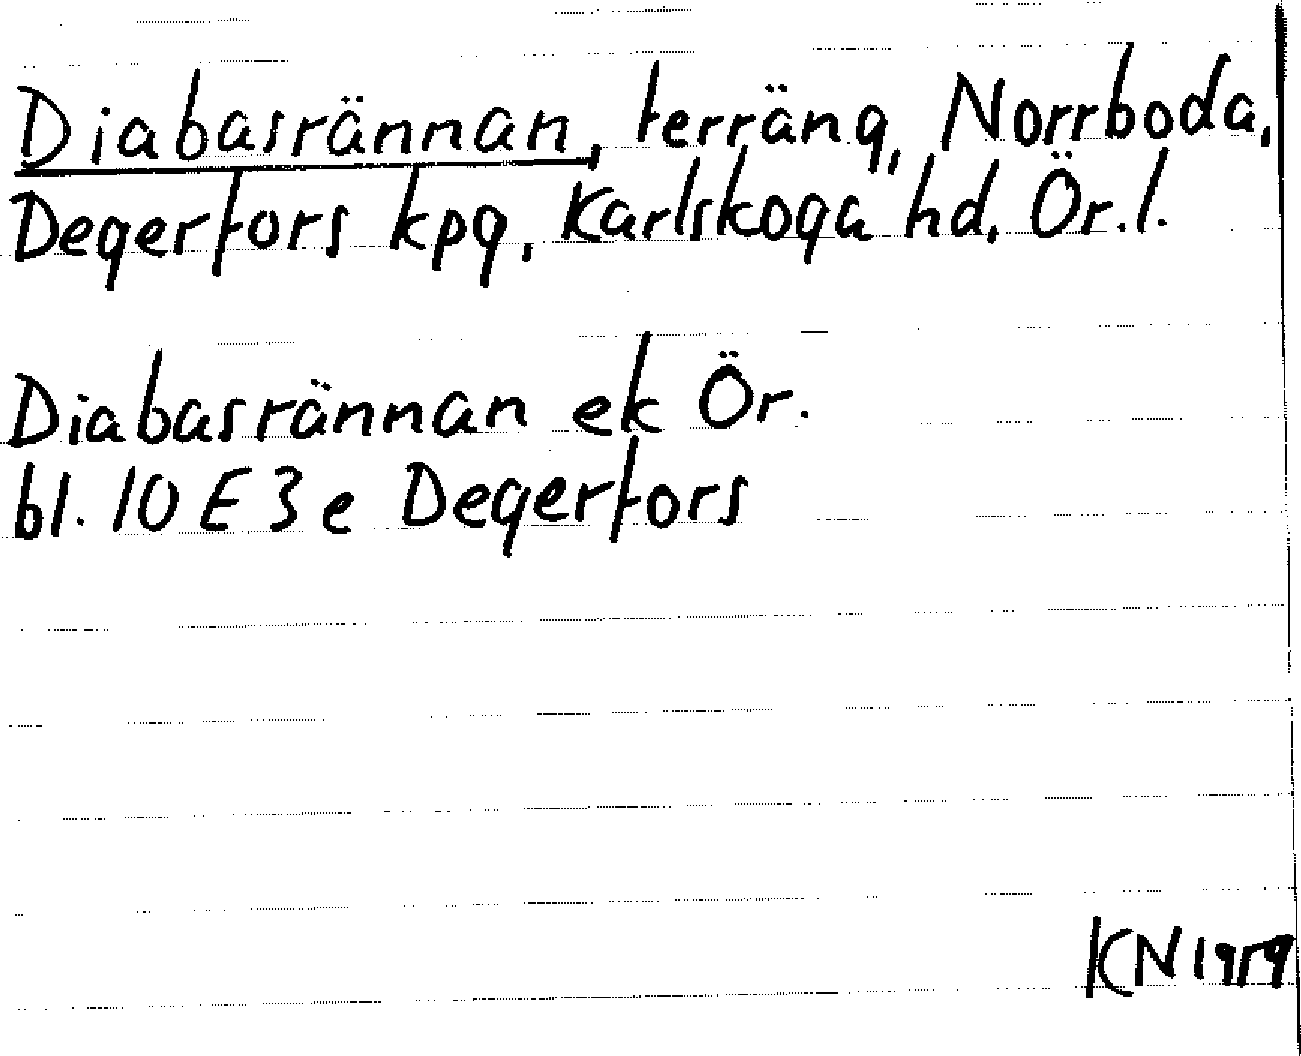 Diabasrännan, terräng, Norrboda,
Degerfors kpg, Karlskoga hd, Ör.l.
Diabasrännan ek Ör.
bl. 10 E 3 e Degerfors
KN 1959